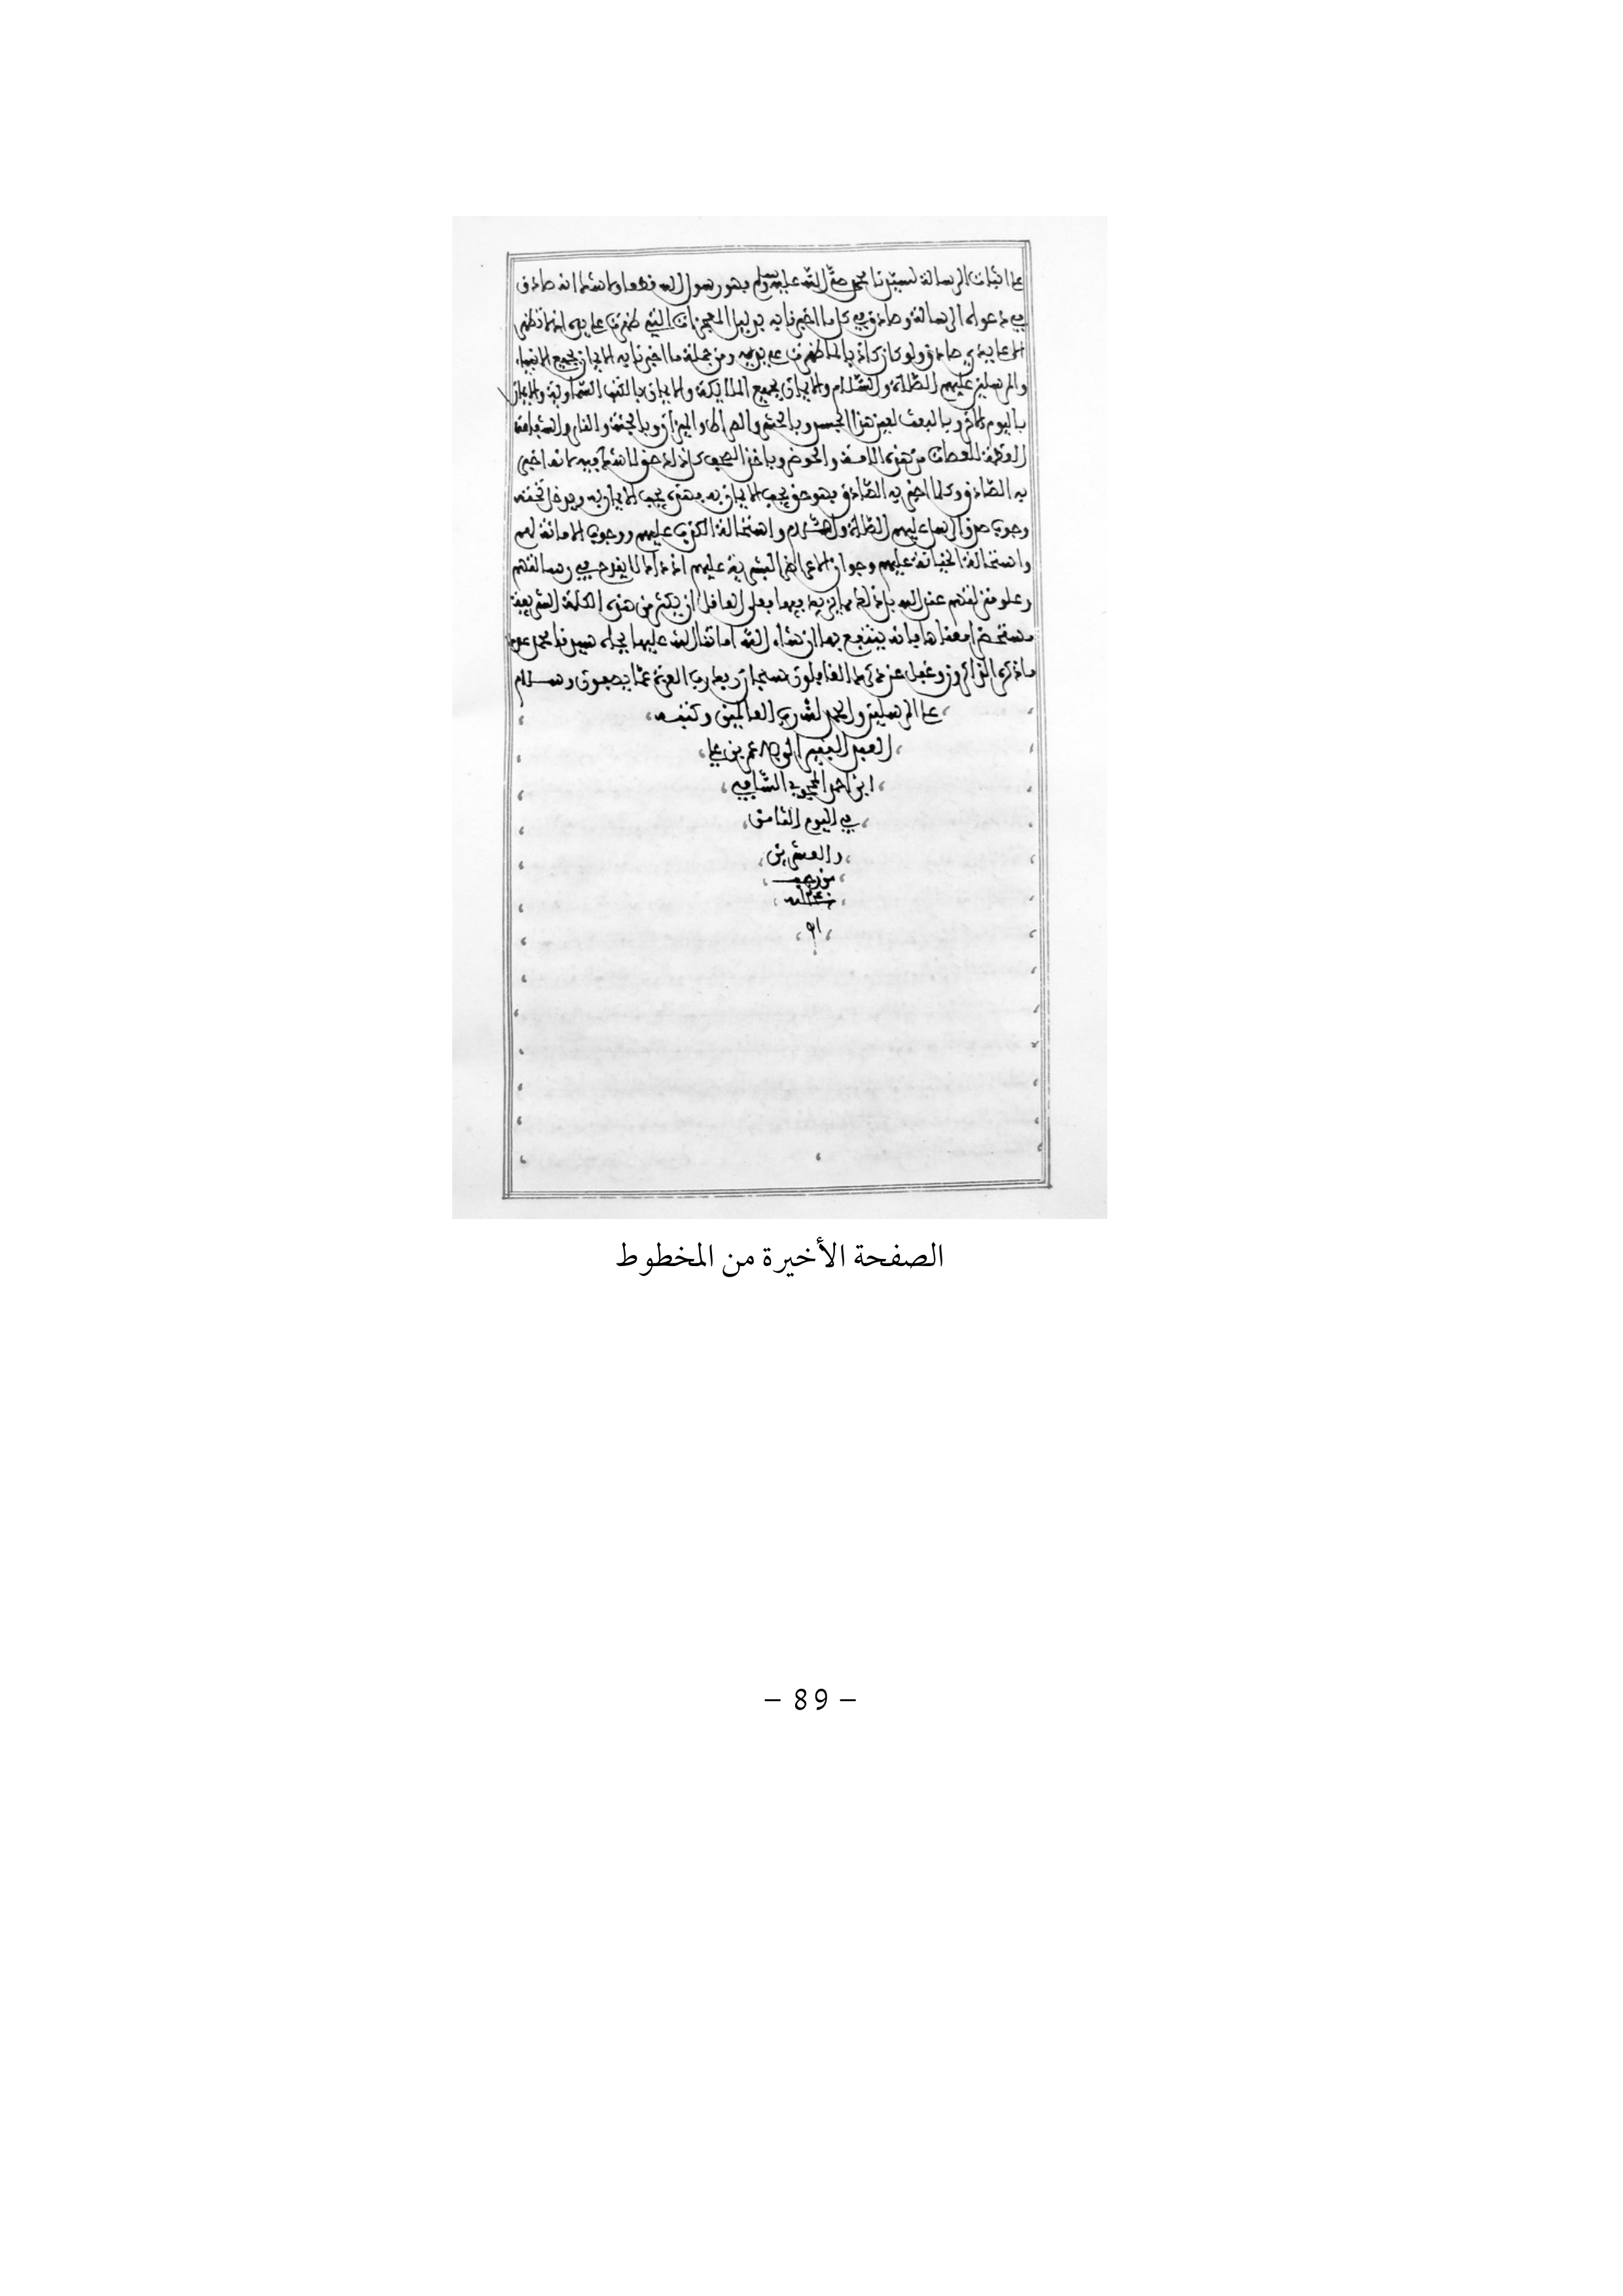 على اثبات الرسالة لسيدنا محمد صلى الله عليه وسلم فهو رسول الله قطعا ولا شك انه صادق
في دعواه الرسالة وصادق في كل ما اخبرنا به بدليل المعجزات التي ظهرت على يديه اذ لا تظهر
الا على يدي صادق ولو كان كاذبا لما ظهرت على يديه ومن جملة ما اخبرنا به الايمان بجميع الانبياء
والمرسلين عليهم الصلاة والسلام والايمان بجميع الملايكة والايمان بالكتب السماوية والايمان
باليوم الاخر وبالبعث لعين هذا الجسد وبالحشر والصراط والميزان وبالجنة والنار والشفاعة
العظمى للعصات من هذه الامة والحوض وباخذ الصحف كل ذلك حق لا شك فيه لانه اخبر
به الصادق وكلما اخبر به الصادق فهو حق يجب الايمان به فهذه يجب الايمان به ويدخل تحته
وجوب صدق الرسل عليهم الصلاة والسلام واستحالة الكذب عليهم ووجوب الامانة لهم
واستحالة الخيانة عليهم وجواز الاعراض البشرية عليهم اذ ذاك لا يقدح في رسالتهم
وعلو منزلتهم عند الله بل ذلك مما يزيد فيها فعلى العاقل ان يكثر من هذه الكلمة الشريفة
مستحضرا معناها فانه ينتفع بها ان شاء الله اماتنا الله عليها بجاه سيدنا محمد
ما ذكره الذاكرون وغفل عن ذكره الغافلون سبحان ربك رب العزة عما يصفون وسلام
على المرسلين والحمد لله رب العالمين وكتبه
العبد الفقير عمر بن علي
ابن احمد الشافعي
في اليوم الثامن
والعشرين
من رجب
الصفحة الأخيرة من المخطوط
– 89 –